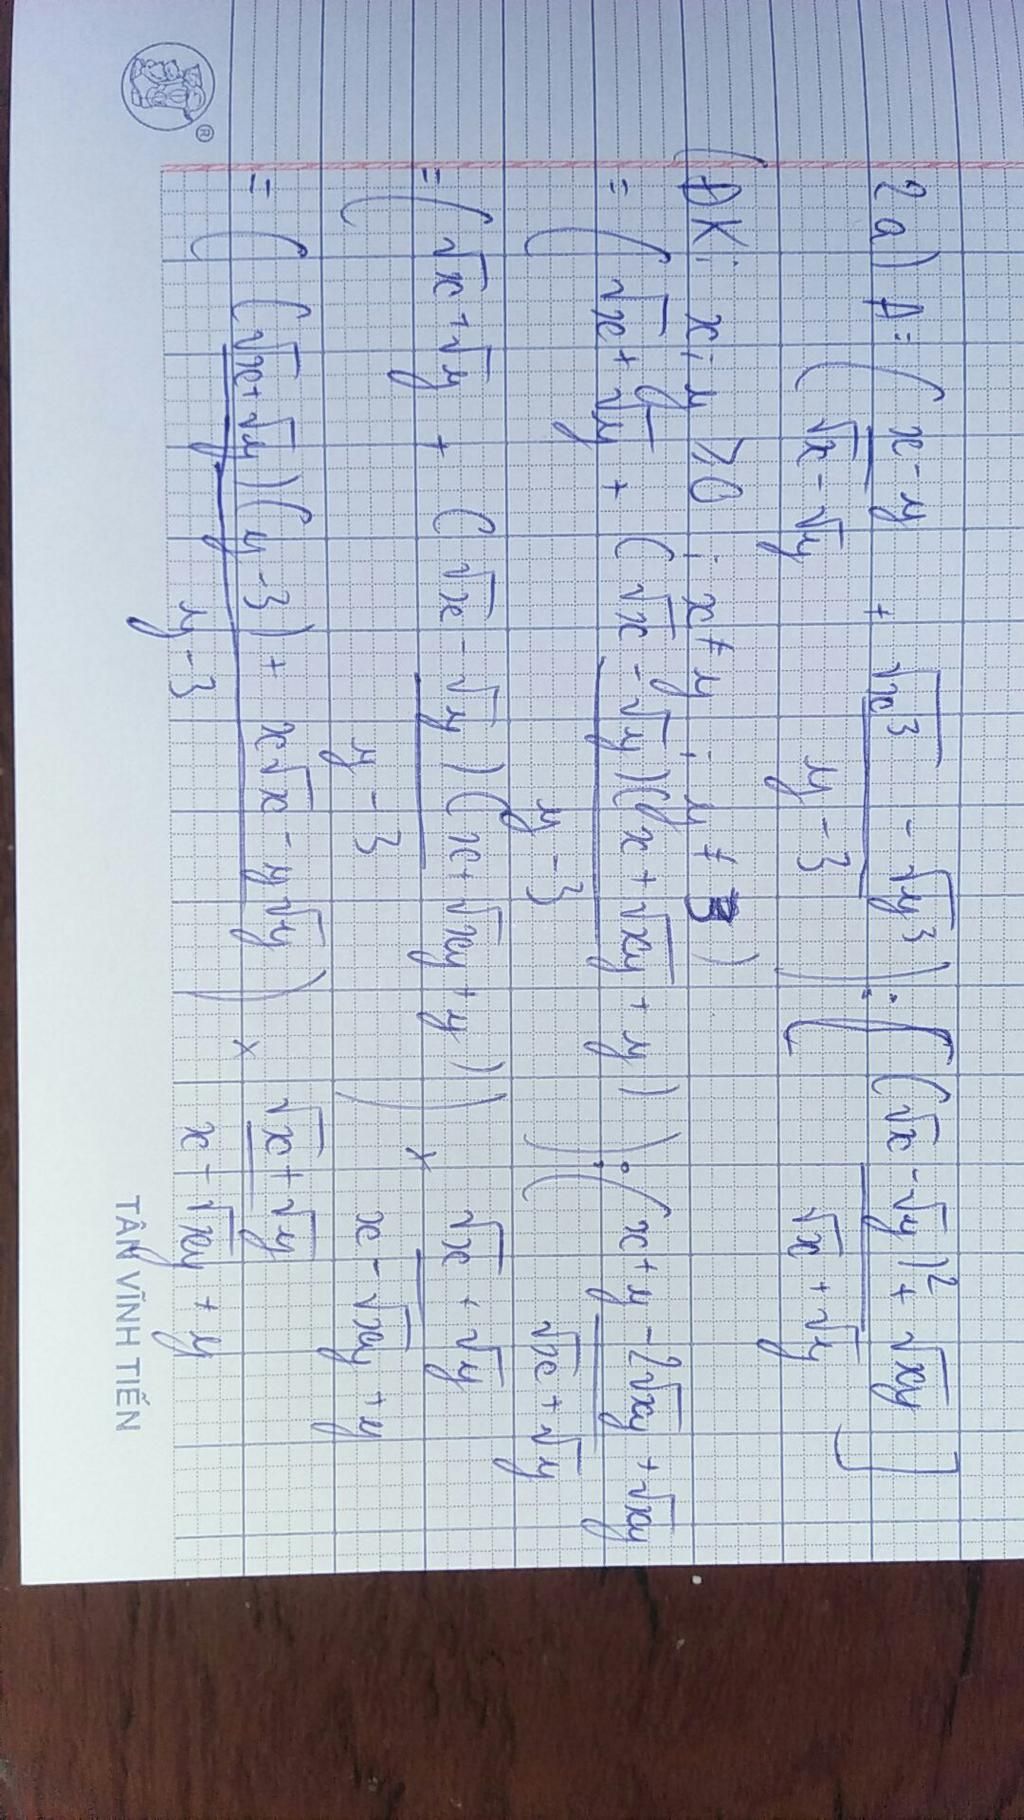 2a) A = ( x - y / √x - √y + √x³ - √y³ / y - 3 ) : [ (√x - √y)² + √xy / √x + √y ]
(ĐK: x; y ⩾ 0 ; x ≠ y ; y ≠ 3 )
= ( √x + √y + (√x - √y)(x + √xy + y) / y - 3 ) : ( x + y - 2√xy + √xy / √x + √y
= ( √x + √y + (√x - √y)(x + √xy + y) / y - 3 ) × √x + √y / x - √xy + y
= ( (√x + √y)(y - 3) + x√x - y√y / y - 3 ) × √x + √y / x - √xy + y
®
TÂN VĨNH TIẾN